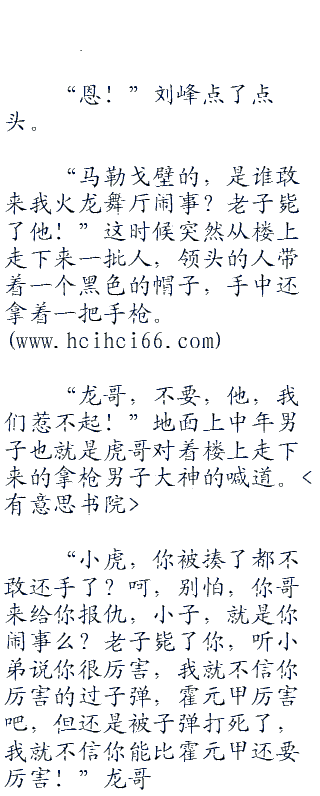 “恩！”刘峰点了点
头。
“马勒戈壁的，是谁敢
来我火龙舞厅闹事？老子毙
了他！”这时候突然从楼上
走下来一批人，领头的人带
着一个黑色的帽子，手中还
拿着一把手枪。
(www.hcihci66.com)
“龙哥，不要，他，我
们惹不起！”地面上中年男
子也就是虎哥对着楼上走下
来的拿枪男子大神的喊道。<
有意思书院>
“小虎，你被揍了都不
敢还手了？呵，别怕，你哥
来给你报仇，小子，就是你
闹事么？老子毙了你，听小
弟说你很厉害，我就不信你
厉害的过子弹，霍元甲厉害
吧，但还是被子弹打死了，
我就不信你能比霍元甲还要
厉害！”龙哥